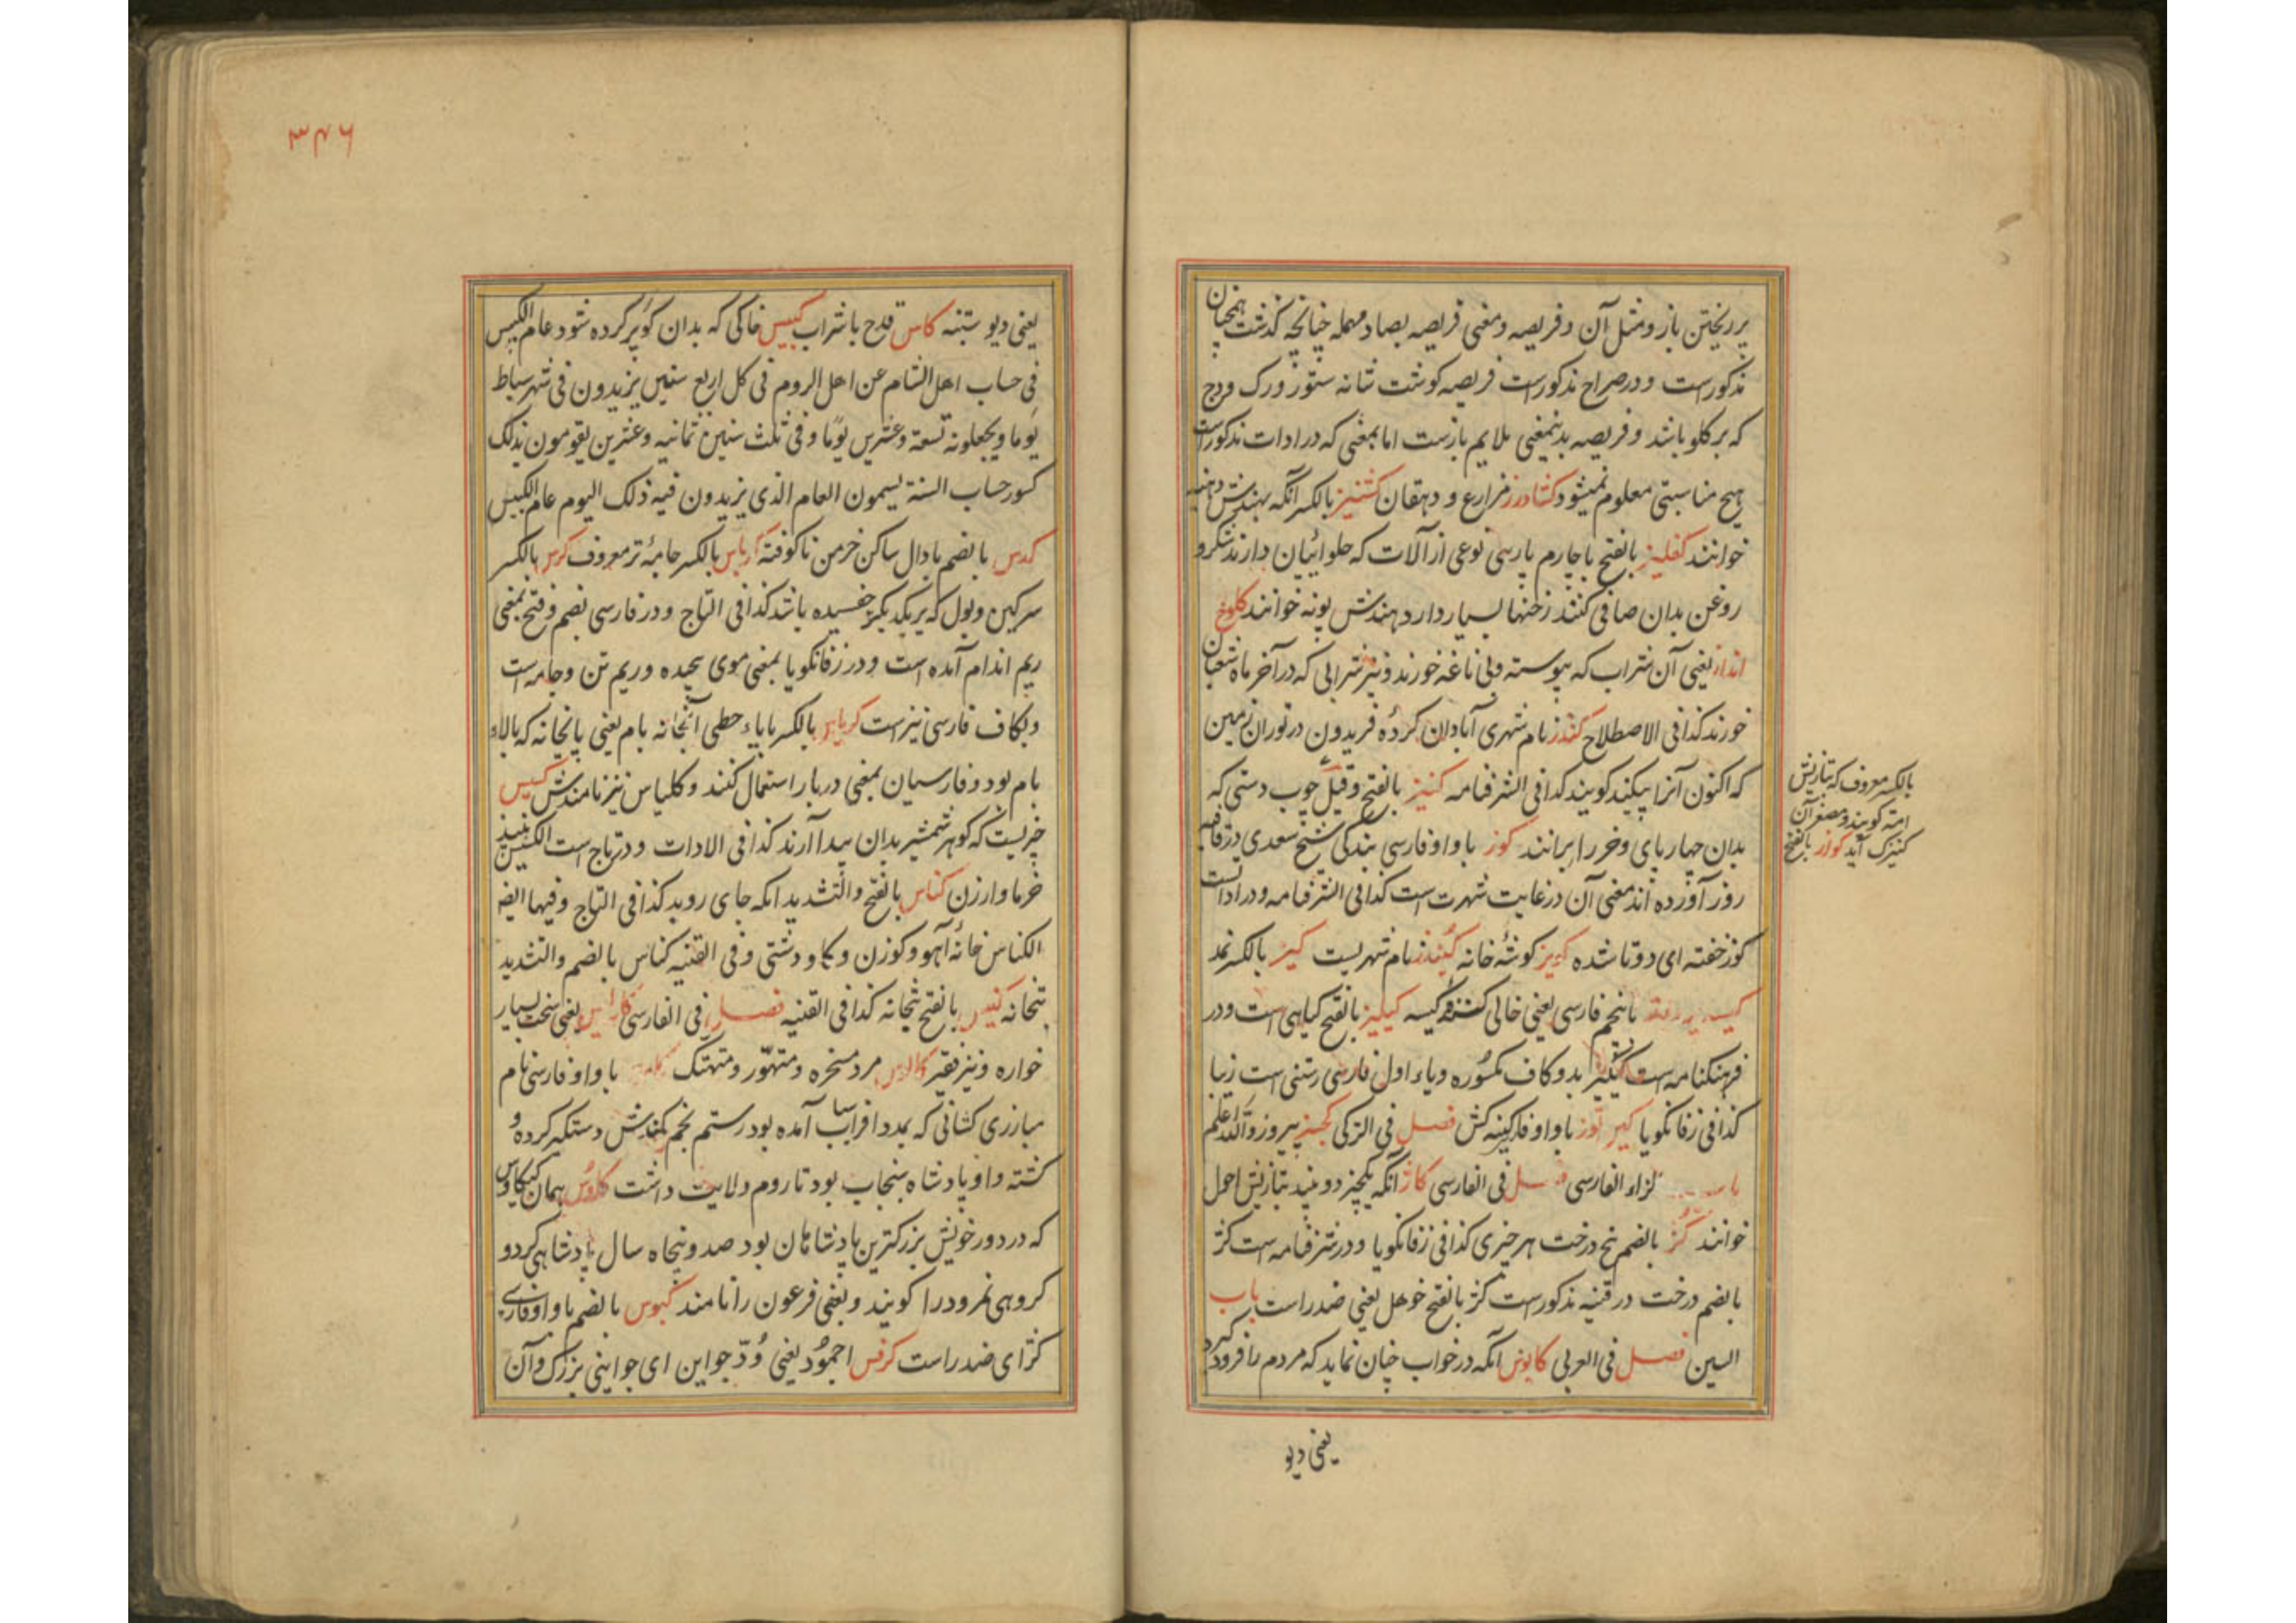 بر ریختن باز و مثل آن و فریصه و معنی فریصه بصاد مهمله چنانچه گذشت همچنان
مذکور است و در صراح مذکور است فریصه گوشت شانه ستور و رک ودج
که بر گلو باشد و فریصه بدینمعنی ملایم بازست اما بمعنی که در ادات مذکور است
هیچ مناسبتی معلوم نمیشود کشاورز مزارع و دهقان کشنیز بالکسر آنکه بهندش دهنیه
خوانند کفلیز بالفتح با چارم پارسی نوعی از آلات که حلوائیان دارند شکر و
روغن بدان صافی کنند زخنها بسیار دارد بهندش پونه خوانند کلوخ
انداز یعنی آن شراب که پیوسته و بی ناغه خورند و نیز شرابی که در آخر ماه شعبان
خورند کذا فی الاصطلاح کندز نام شهری آبادان کردهٔ فریدون در توران زمین
که اکنون آنرا بیکند گویند کذا فی الشرفنامه کنیز بالفتح و قیل چوب دستی که
بدان چهارپای و خر را برانند کوز با واو فارسی بندگی شیخ سعدی در قافیه
روز آورده اند معنی آن در غایت شهرت است کذا فی الشرفنامه و در ادات است
کوز خفته ای دوتا شده کویز گوشهٔ خانه کیندز نام شهریست کیز بالکسر نمد
با پنجم فارسی یعنی خالی کنندهٔ کیسه کیلیز بالفتح گیاهی است و در
فرهنگنامه است بدو کاف مکسوره و یاء اول فارسی رستنی است زیبا
کذا فی زفانگویا کیر توز با واو فا کینه کش فصل فی الترکی کجز پیروز والله اعلم
باب الزاء الفارسی فصل فی الفارسی کاژ آنکه یکچیز دو بیند بتازیش احول
خوانند کژ بالضم بیخ درخت هر چیزی کذا فی زفانگویا و در شرفنامه است کژ
بالضم درخت در قنیه مذکور است کژ بالفتح خوهل یعنی ضد راست باب
السین فصل فی العربی کابوس آنکه در خواب چنان نماید که مردم را فرود گیرد
یعنی دیو
بالکسر معروف که بتازیش
امته گویند و مصغر آن
کنیزک آید کواز بالفتح
۳۴۶
یعنی دیو ستنبه کاس قدح با شراب کبیس خاکی که بدان گو پر کرده شود عام الکبیس
فی حساب اهل الشام عن اهل الروم فی کل اربع سنین یزیدون فی شهر سباط
یوما ویجعلونه تسعة وعشرین یوما وفی ثلث سنین ثمانیه وعشرین یقومون بذلک
کسور حساب السنة یسمون العام الذی یزیدون فیه ذلک الیوم عام الکبیس
کدس بالضم با دال ساکن خرمن ناکوفته کرباس بالکسر جامهٔ تر معروف کرس بالکسر
سرگین و بول که بر یکدیگر خفسیده باشد کذا فی التاج و در فارسی بضم و فتح بمعنی
ریم اندام آمده است و در زفانگویا بمعنی موی پیچیده و ریم تن و جامه است
وبکاف فارسی نیز است کریاس بالکسر با یاء حطی آبخانه بام یعنی پایخانه که بالاء
بام بود و فارسیان بمعنی دربار استعمال کنند و کلیاس نیز نامندش کسیس
چیزیست که گوهر شمشیر بدان پیدا آرند کذا فی الادات و در تاج است نبیذ
خرما و ارزن کناس بالفتح والتشدید آنکه جای روبد کذا فی التاج وفیها ایضا
الکناس خانهٔ آهو و گوزن و گاو دشتی وفی القنیه کناس بالضم والتشدید
بتخانه بالفتح بتخانه کذا فی القنیه فصل فی الفارسی یعنی سخت بسیار
خواره و نیز فقیر کالوس مرد مسخره و متهور و متهتک با واو فارسی نام
مبارزی کشانی که بمدد افراسیاب آمده بود رستم بخم کمندش دستگیر کرده و
کشته و او پادشاه سنجاب بود تا روم ولایت داشت کاوس همان کیکاوس
که در دور خویش بزرگترین پادشاهان بود صد و پنجاه سال پادشاهی کرد و
گروهی نمرود را گویند و بعضی فرعون را نامند کبوس بالضم با واو فارسی
کژ ای ضد راست کرفس اجمود یعنی جواین ای جواینی بزرگ و آن